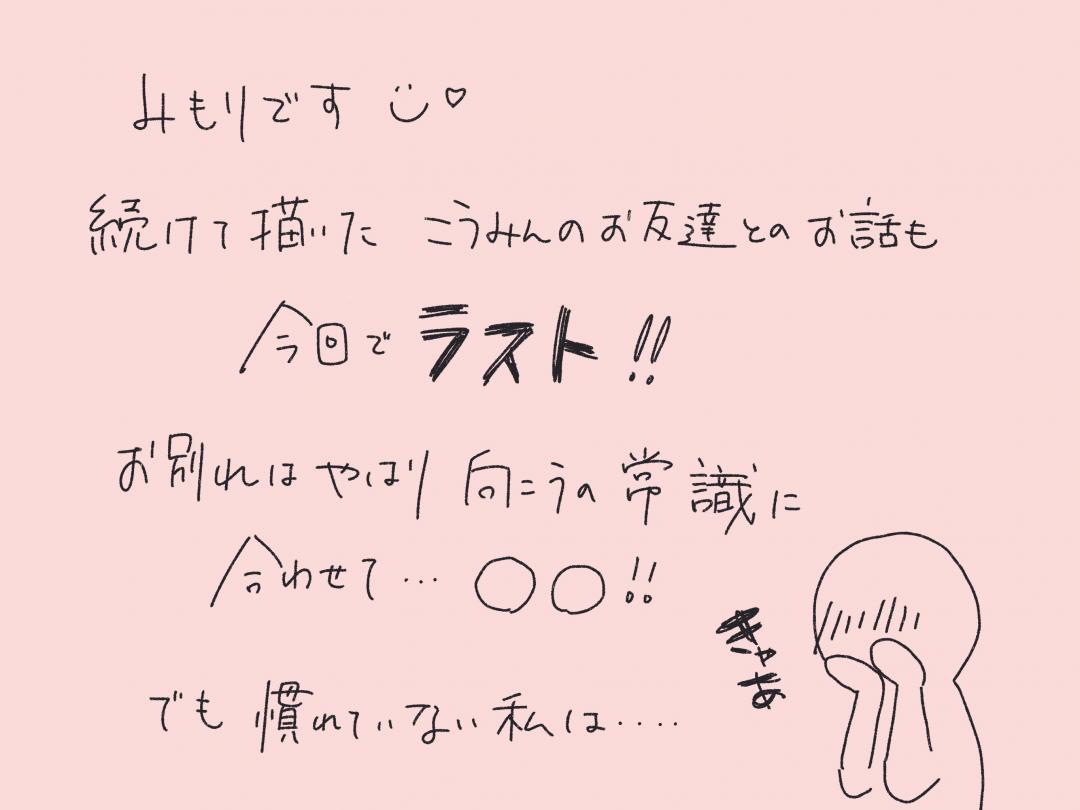 みもりです
続けて描いた こうみんのお友達とのお話も
今回でラスト!!
お別れはやはり向こうの常識に
合わせて…○○!!
きゃあ
でも慣れていない私は‥‥